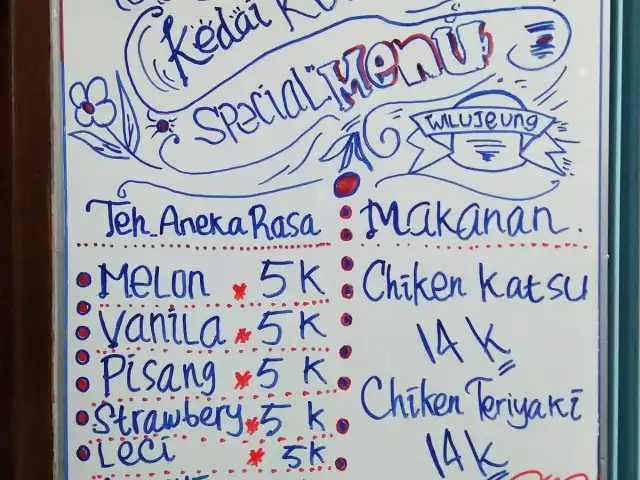 Kedai
Special Menu
Wilujeung
Teh Aneka Rasa
Melon * 5 K
Vanila * 5 K
Pisang * 5 K
Strawbery * 5 K
Leci * 5K
Makanan.
Chiken Katsu
14 K
Chiken Teriyaki
14 K